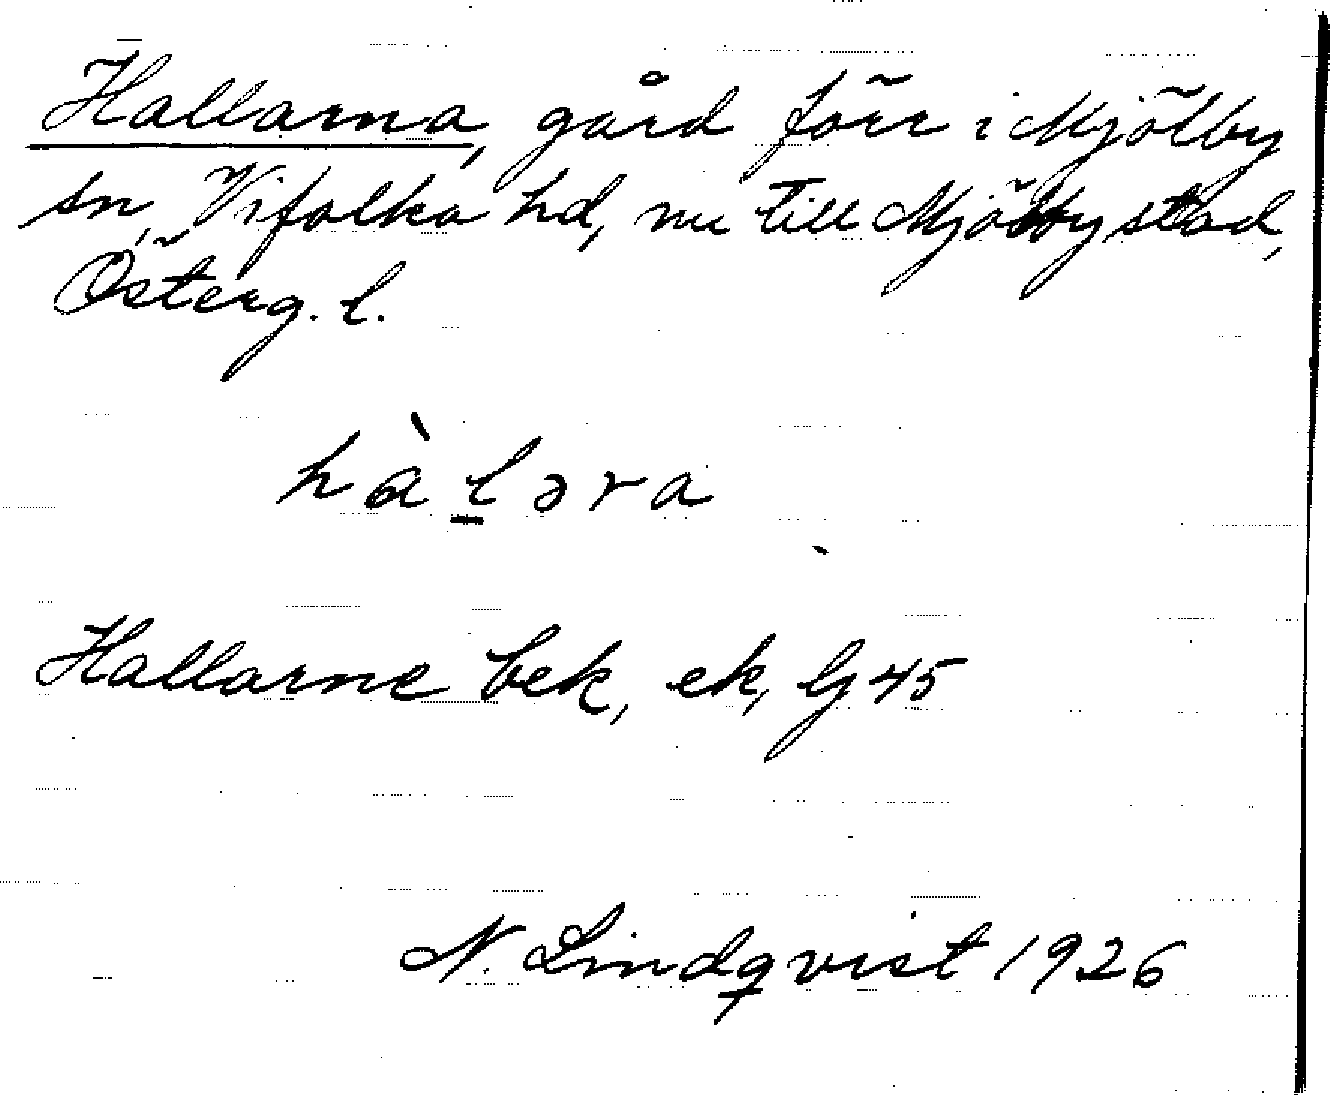 Hallarna, gård förr i Mjölby
sn, Vifolka hd, nu till Mjölby stad,
Österg. l.
hàl̲əra
Hallarne bek, ek, G 45
N. Lindqvist 1926